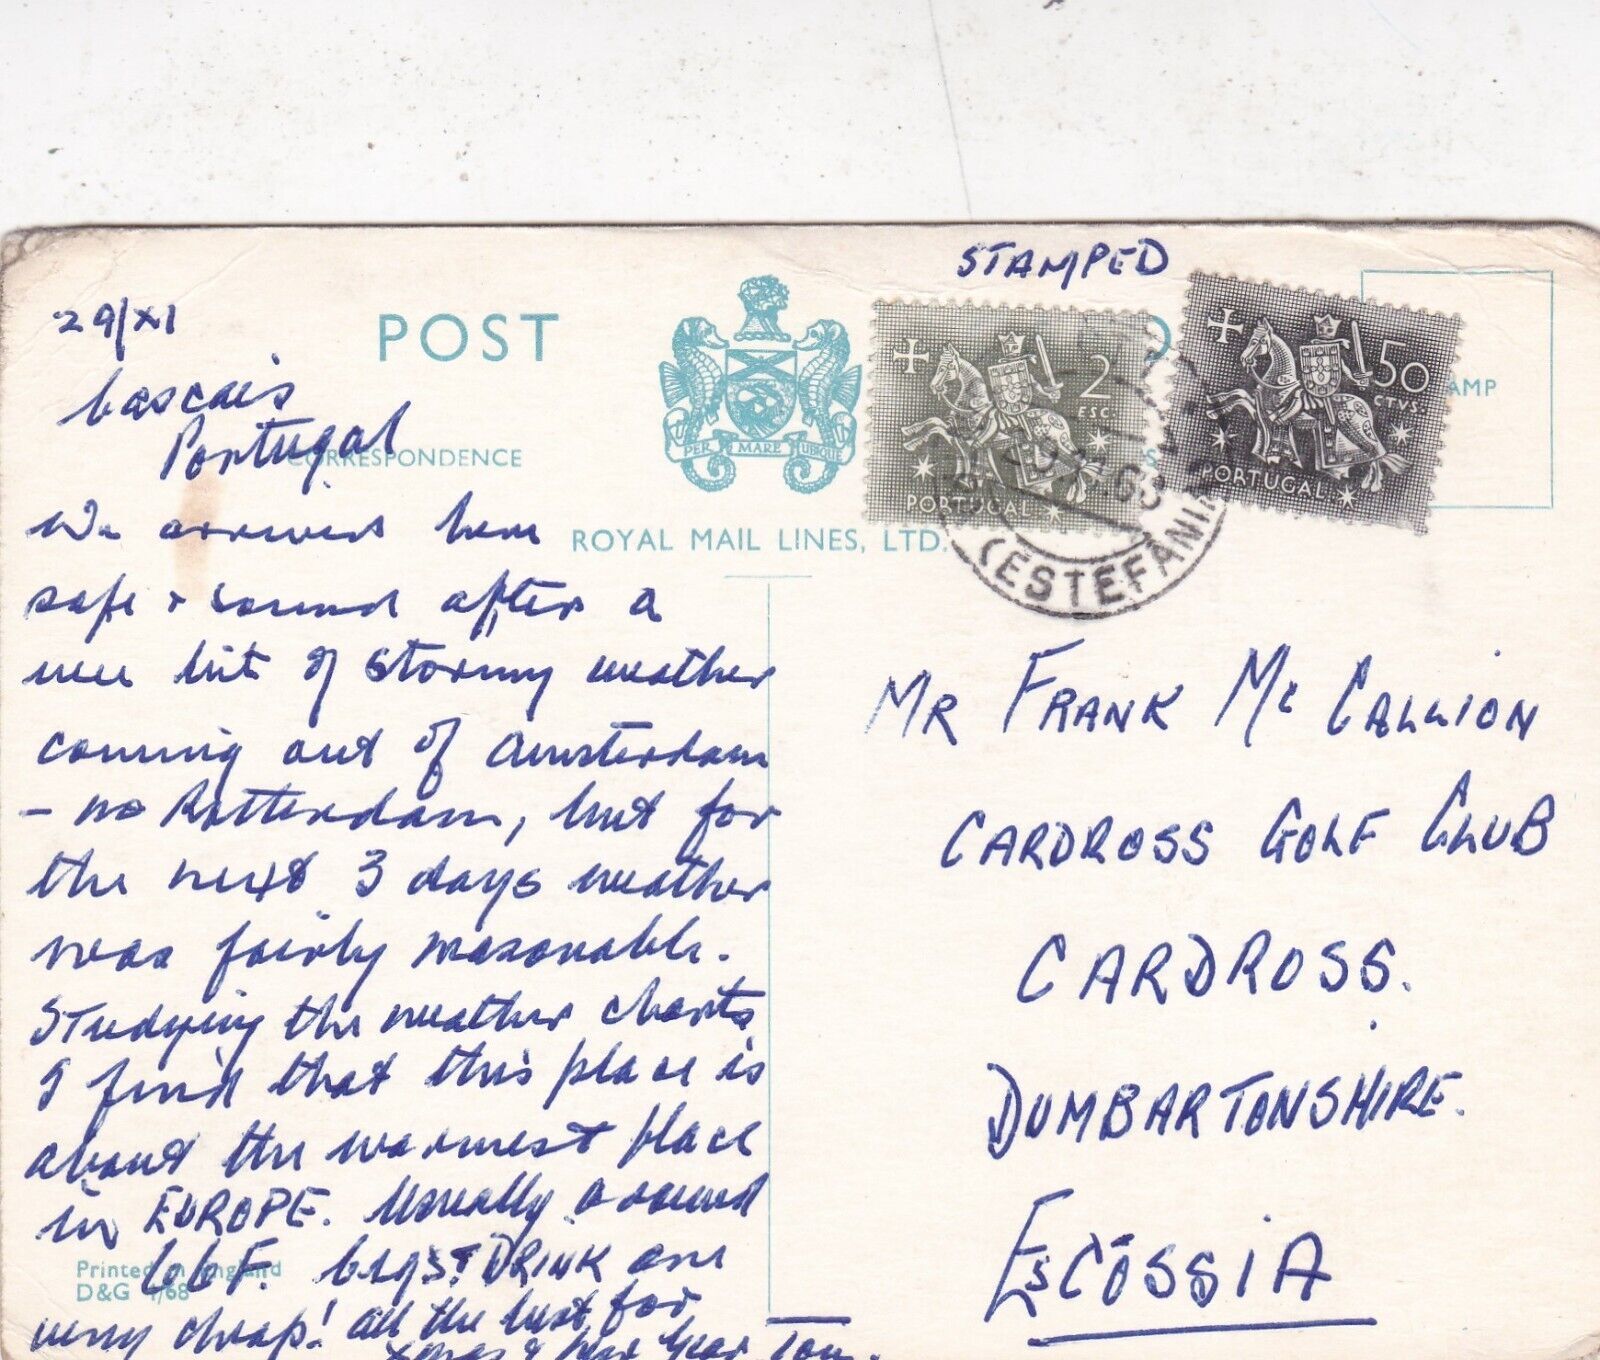 STAMPED
29/XI
POST
Cascais
Portugal
CORRESPONDENCE
PER MARE UBIQUE
ROYAL MAIL LINES, LTD.
2
ESC.
PORTUGAL
50
CTVS.
PORTUGAL
AMP
(ESTEFÂNIA
We arrived here
safe & sound after a
wee bit of stormy weather
coming out of Amsterdam
- no Rotterdam, but for
the next 3 days weather
was fairly reasonable.
Studying the weather charts
I find that this place is
about the warmest place
in EUROPE. Usually around
66F. Cigs & DRINK are
very cheap! All the best for
Xmas & New Year. Tom.
Printed in England
D&G 1/68
MR FRANK Mc CALLION
CARDROSS GOLF CLUB
CARDROSS.
DUMBARTONSHIRE.
ESCÓSSIA